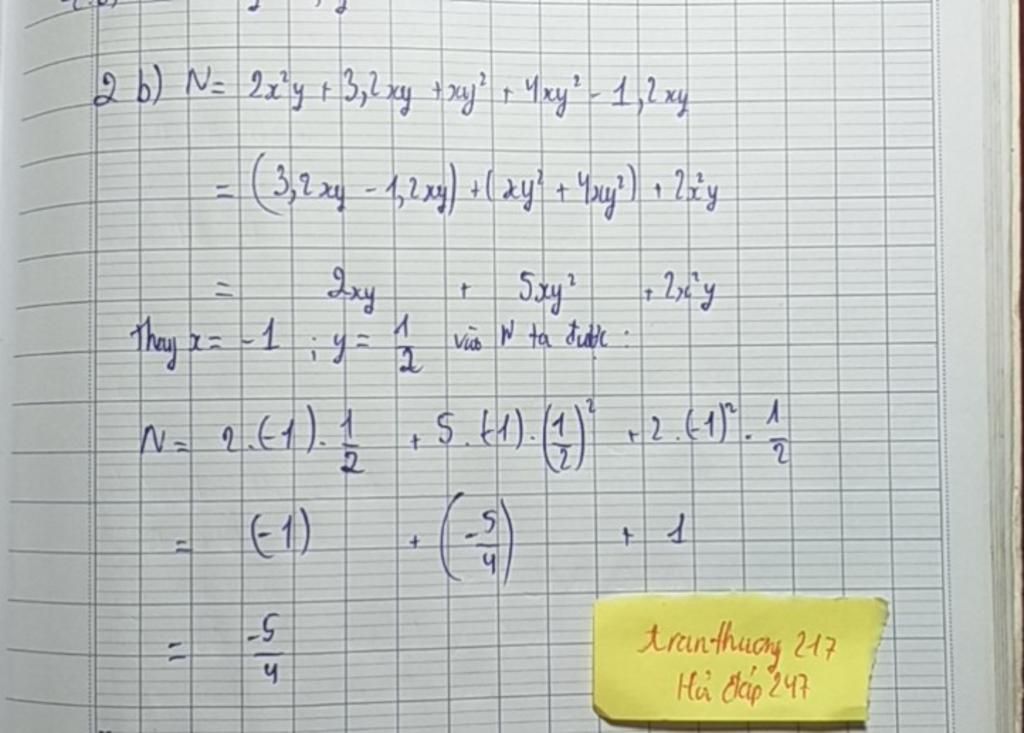 2 b) N = 2x²y + 3,2xy + xy² + 4xy² - 1,2xy
= (3,2xy - 1,2xy) + (xy² + 4xy²) + 2x²y
= 2xy + 5xy² + 2x²y
Thay x = -1 ; y = 1/2 vào N ta được :
N = 2.(-1).1/2 + 5.(-1).(1/2)² + 2.(-1)².1/2
= (-1) + (-5/4) + 1
= -5/4
tranthuong 217
Hỏi đáp 247